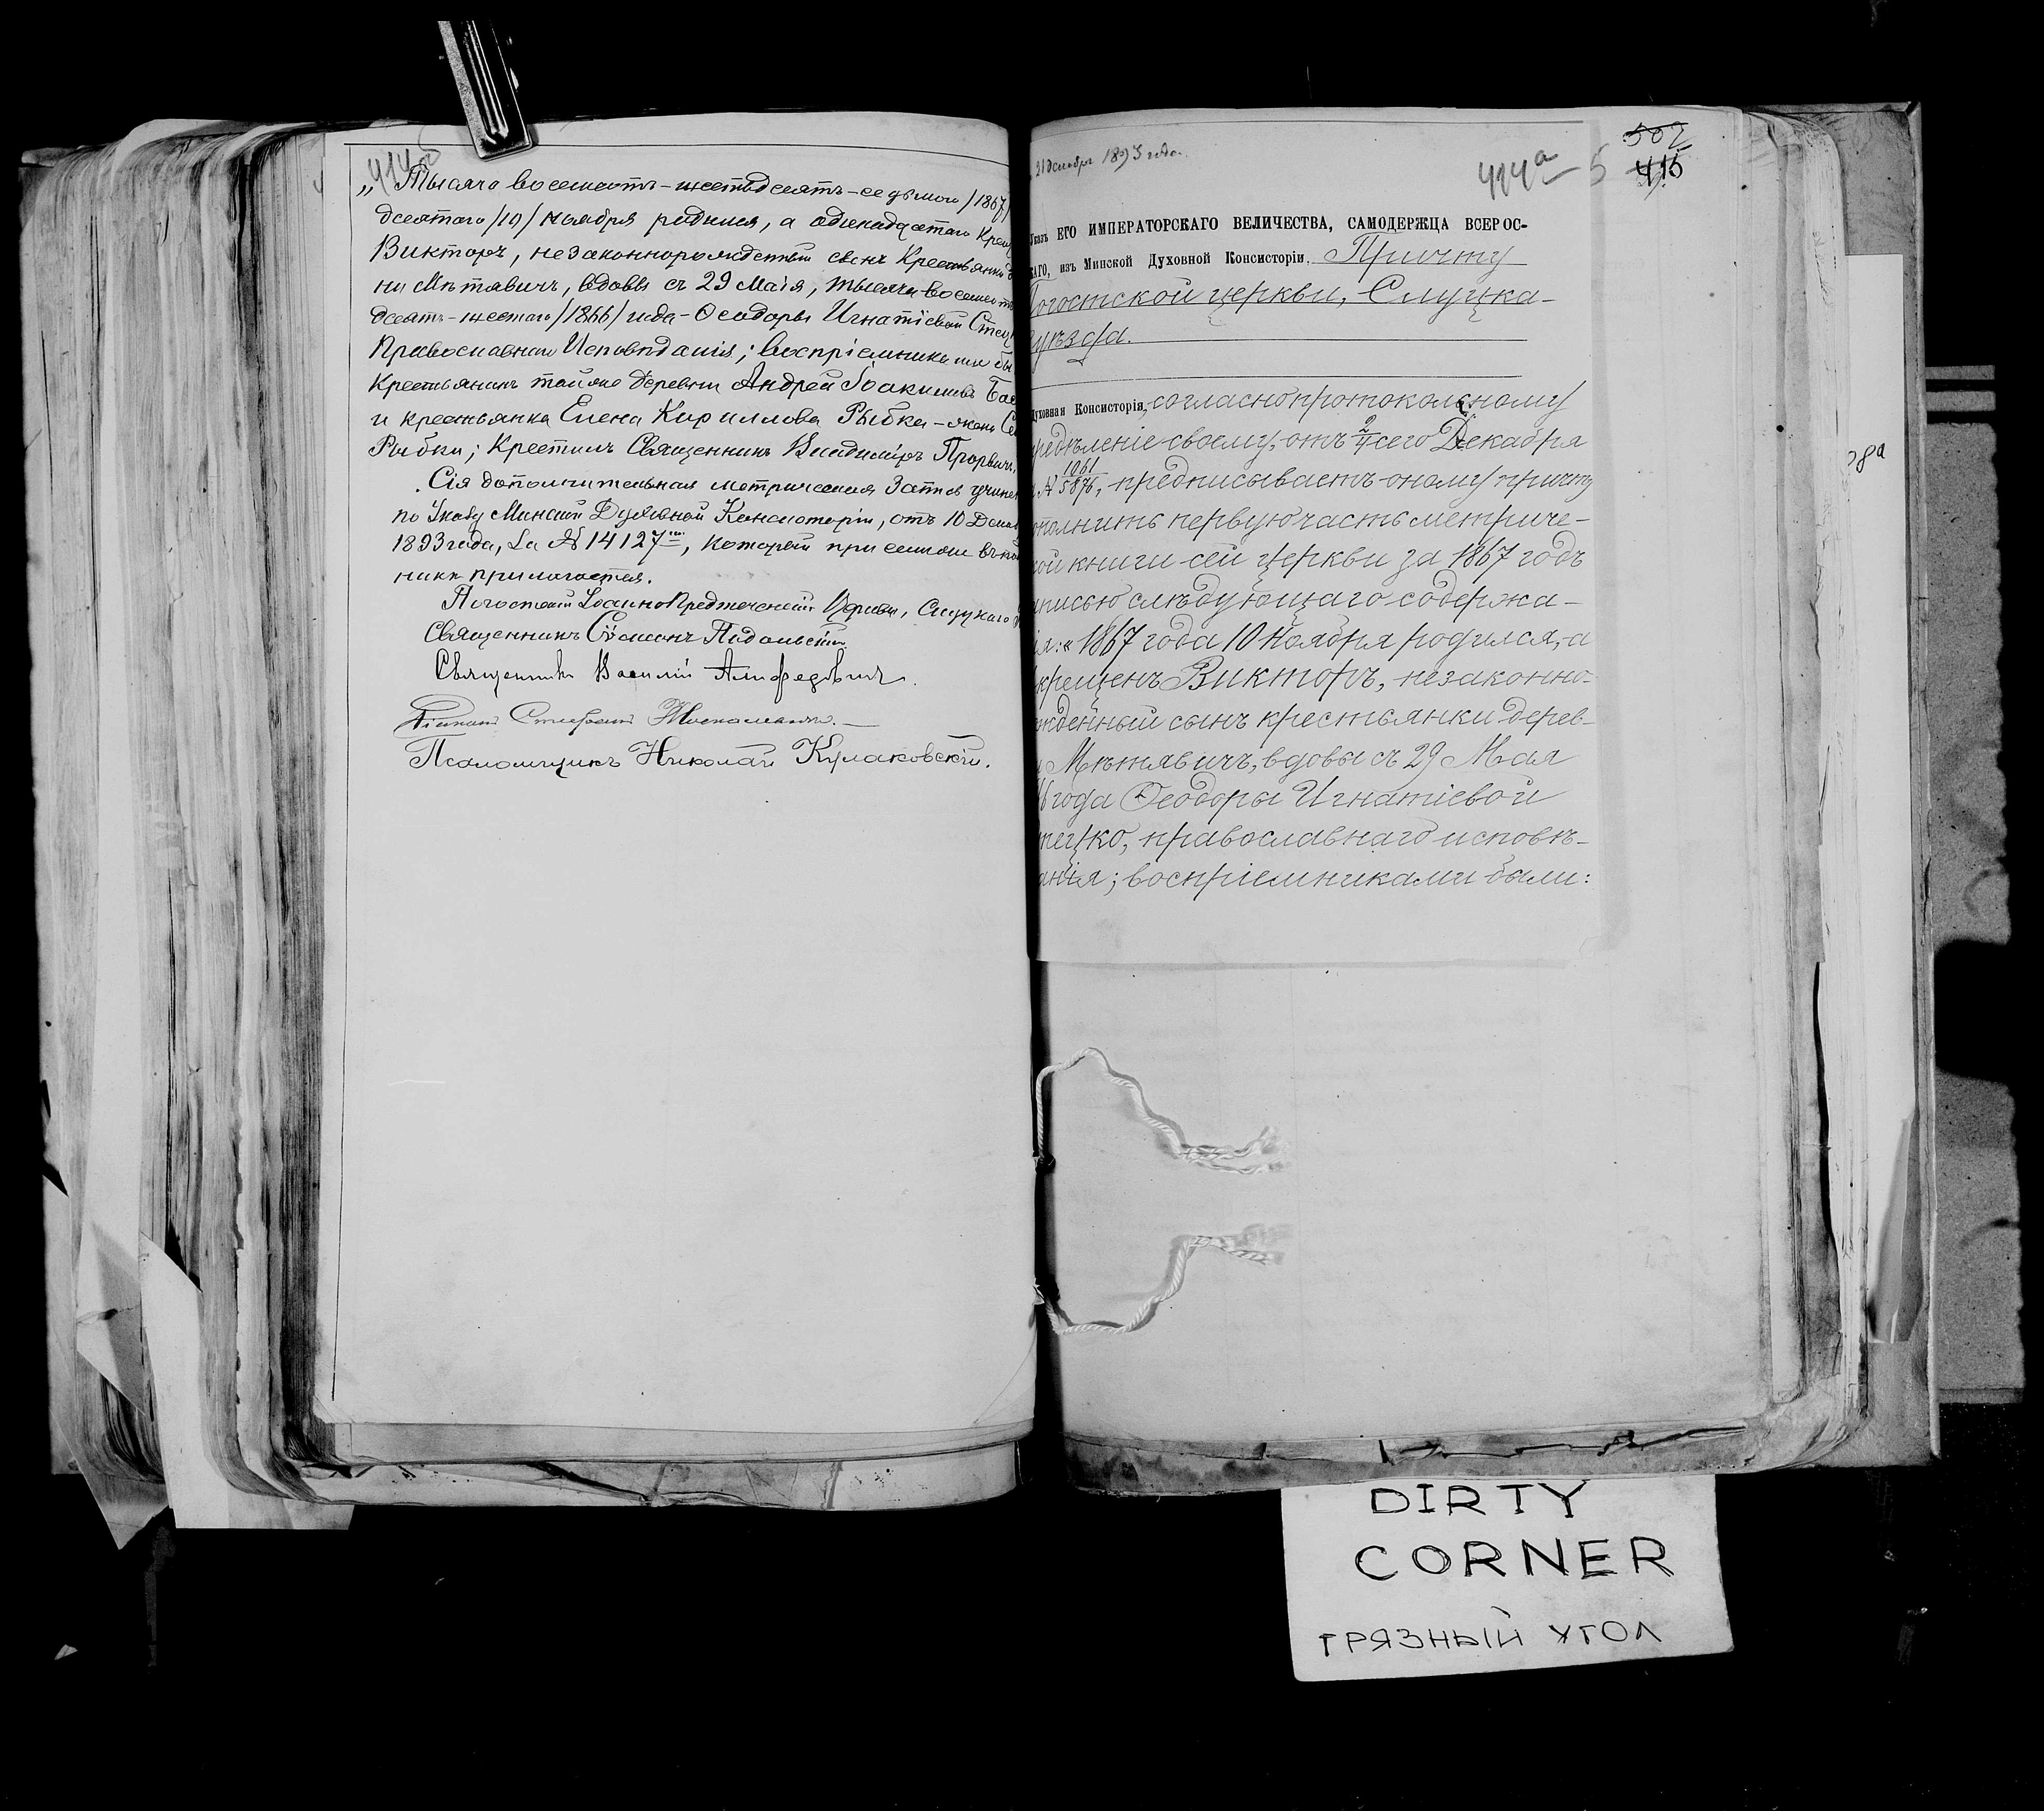 414а
„Тысяча восемьсотъ-шестьдесятъ-седьмого/1867/
десятаго/10/ ноября родился, а одинадцатаго крещ
Викторъ, незаконнорожденный сынъ крестьянки д
ни Мѣтявичъ, вдовы съ 29 Маія, тысяча восемьсотъ
десятъ-шестаго/1866/ года-Ѳеодоры Игнатіевой Стец
Православнаго Исповѣданія; воспріемниками бы
Крестьянинъ той же деревни Андрей Іоакимовъ
и крестьянка Елена Кириллова Рыбка-жена Се
Рыбки; Крестилъ Священникъ Владиміръ
Сія дополнительная метрическая запись учинен
по Указу Минской Духовной Консисторіи, отъ 10 Декаб
1893 года, за № 14127, который при семъ въ
прилагается.
Погостской Іоанно Предтеченской Церкви, Слуцкаго
Священникъ Симеонъ
Священникъ Василій
Псаломщикъ Николай Кулаковскій.
31 декабря 1893 года.
414а - 5
507
415
Указъ ЕГО ИМПЕРАТОРСКАГО ВЕЛИЧЕСТВА, САМОДЕРЖЦА ВСЕРОС-
КАГО, изъ Минской Духовной Консисторіи. Причту
Погостской церкви, Слуцка-
уѣзда.
Духовная Консисторія, согласно протокольному
редѣленіе своему, отъ 2/4 сего Декабря
№ 1061/5876, предписываетъ оному причту
ополнить первую часть метриче-
кой книги сей церкви за 1867 годъ
аписью слѣдующаго содержа-
ія: „1867 года 10 Ноября родился, а
крещенъ Викторъ, незаконно-
жденный сынъ крестьянки дерев-
и Мѣтявичъ, вдовы съ 29 Мая
6 года Ѳеодоры Игнатіевой
тецко, православнаго исповѣ-
анія; воспріемниками были:
DIRTY
CORNER
ГРЯЗНЫЙ УГОЛ